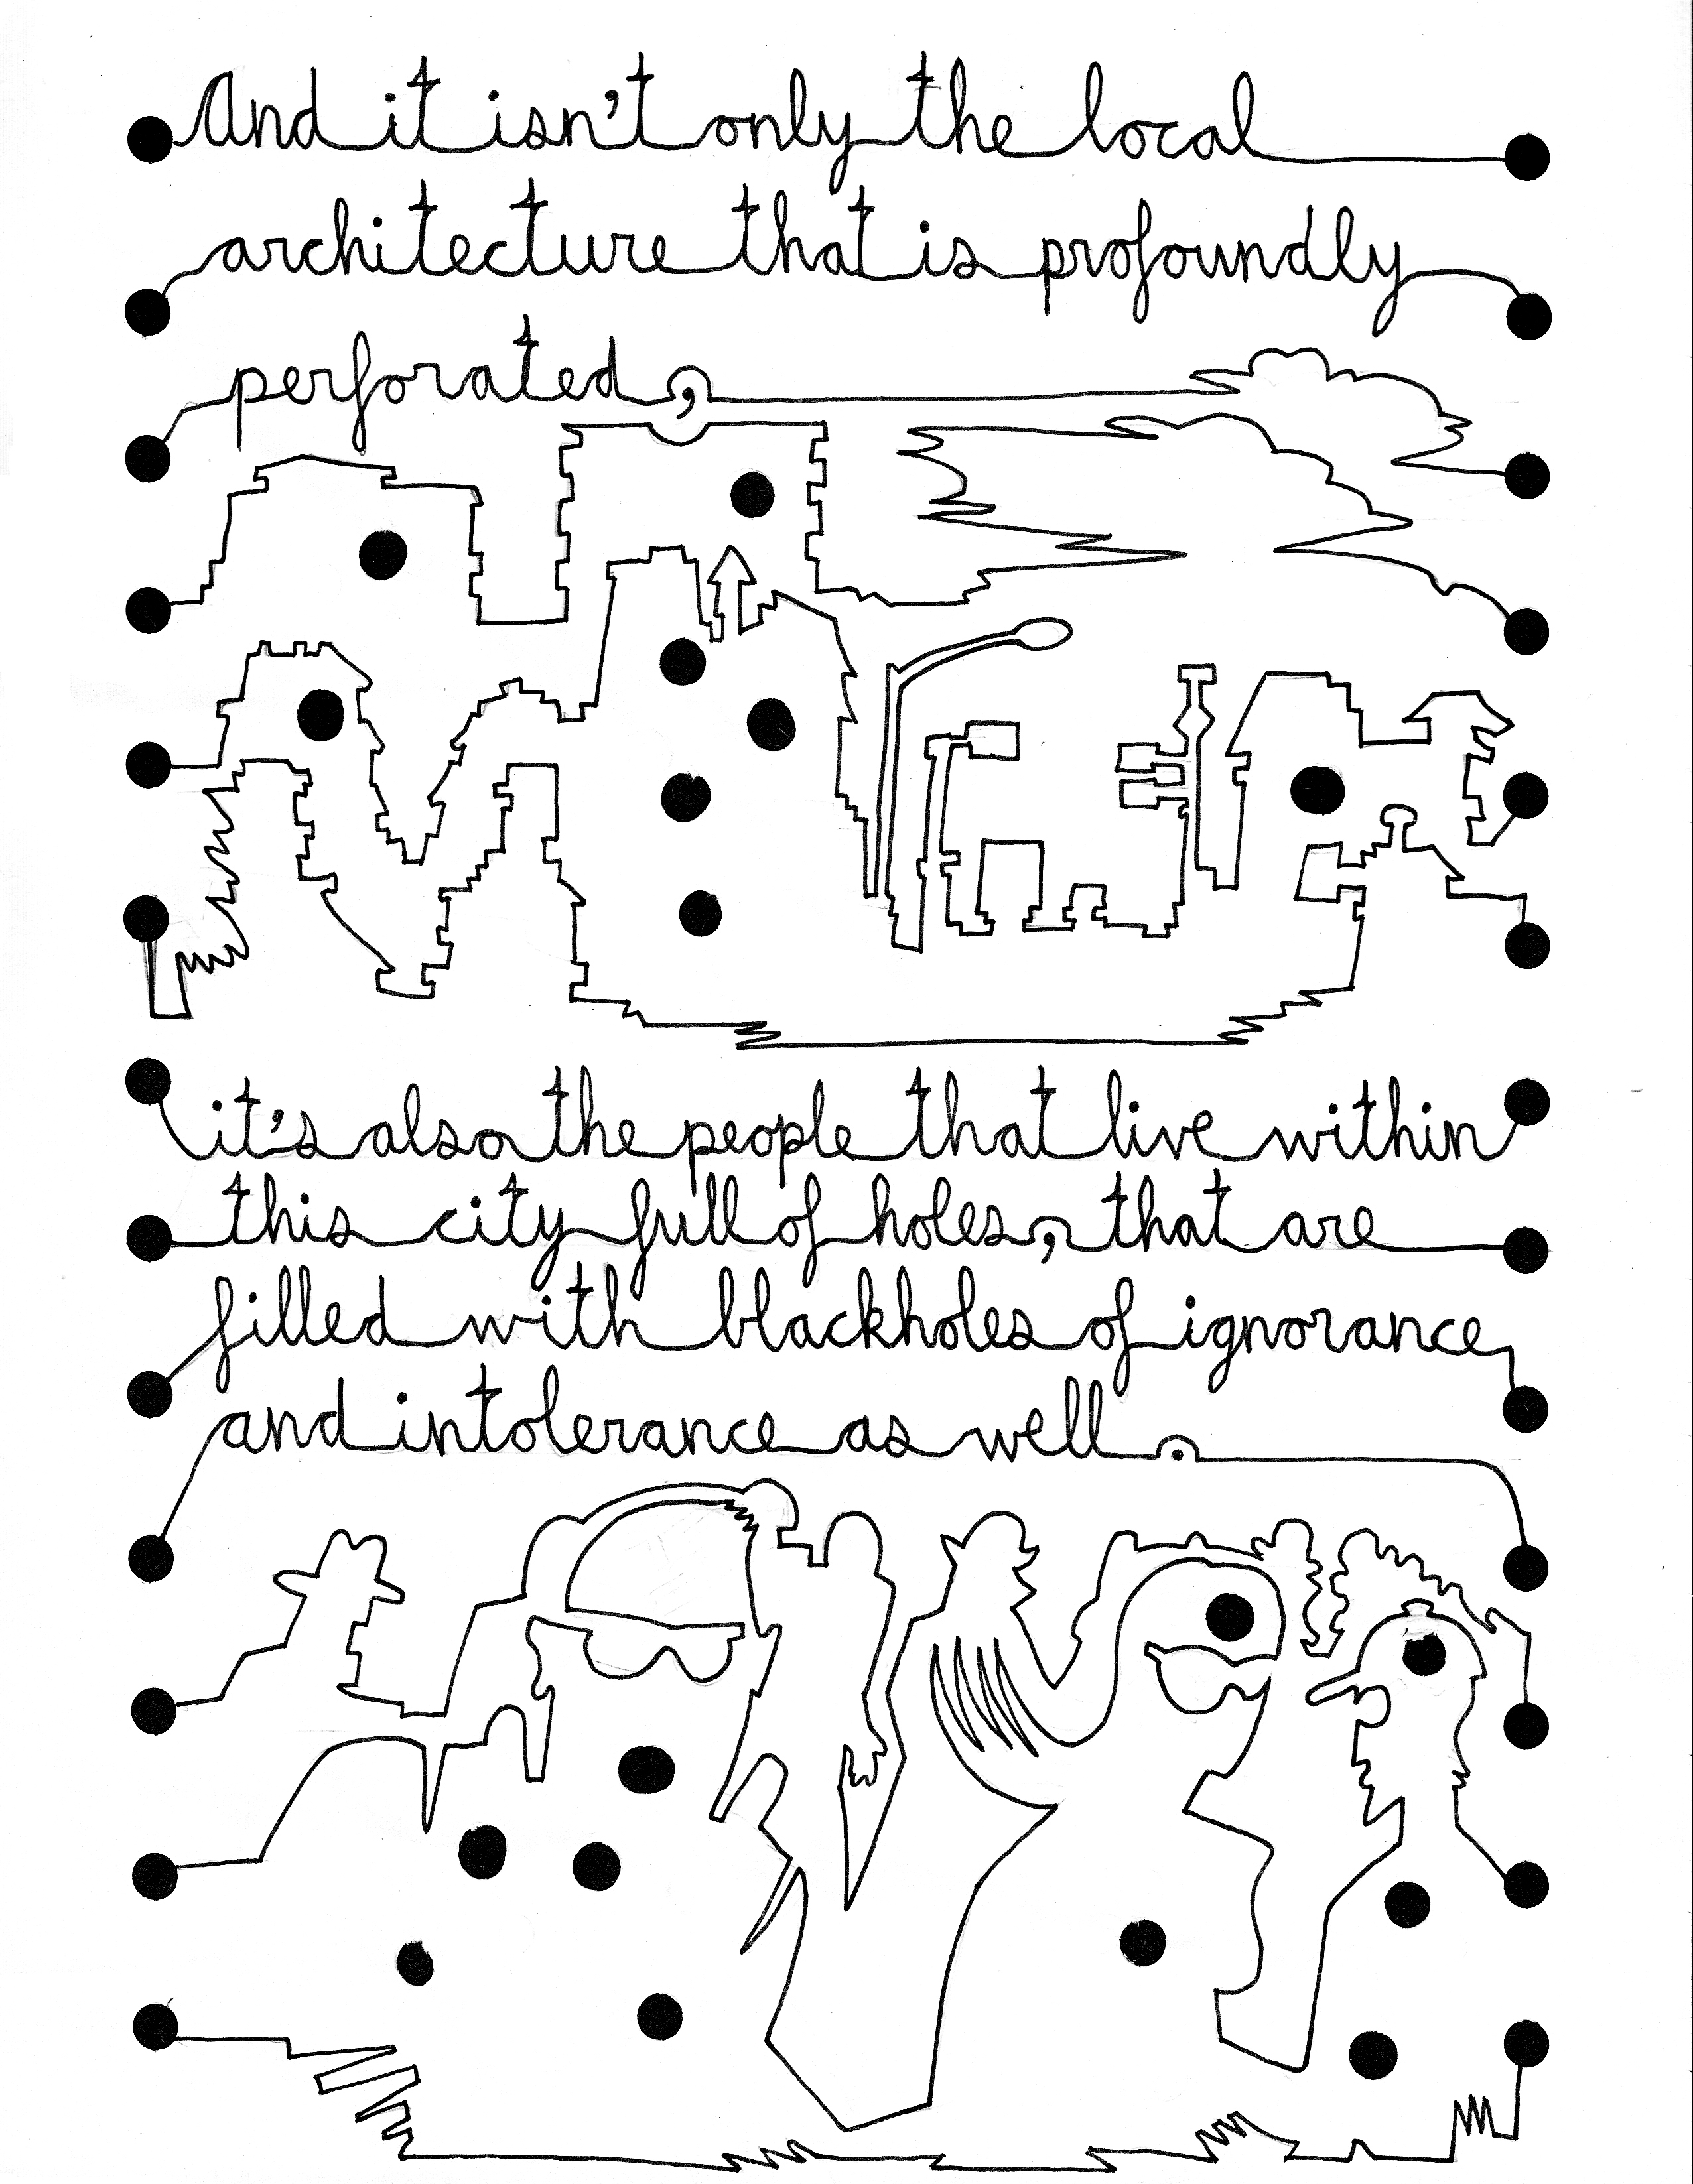 And it isn't only the local
architecture that is profoundly
perforated,
it's also the people that live within
this city full of holes, that are
filled with blackholes of ignorance
and intolerance as well.